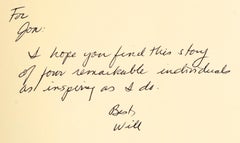 For
Jon:
I hope you find this story
of four remarkable individuals
as inspiring as I do.
Best,
Will